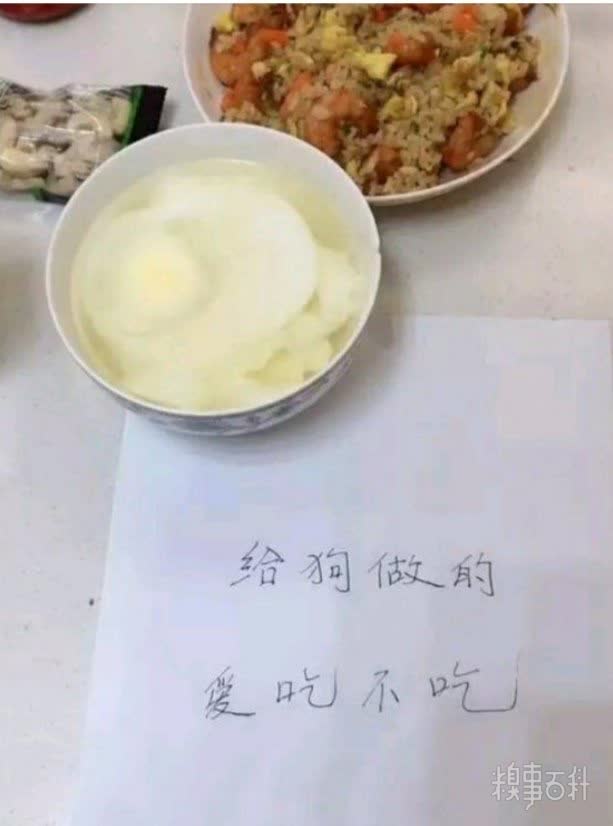 给狗做的
爱吃不吃
糗事百科